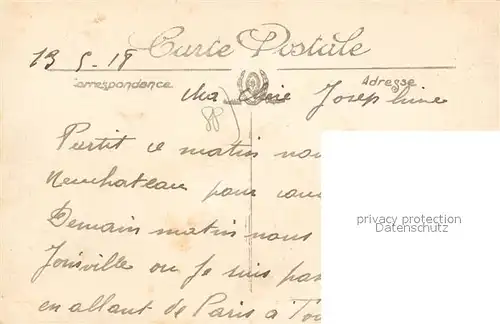 Carte Postale
13 5 19
Correspondance
Adresse
Ma chérie Joséphine
Partit ce matin nou
Neuchateau pour
Demain matin nous
Joinville ou Je suis pas
en allant de Paris a Tou
privacy protection
Datenschutz